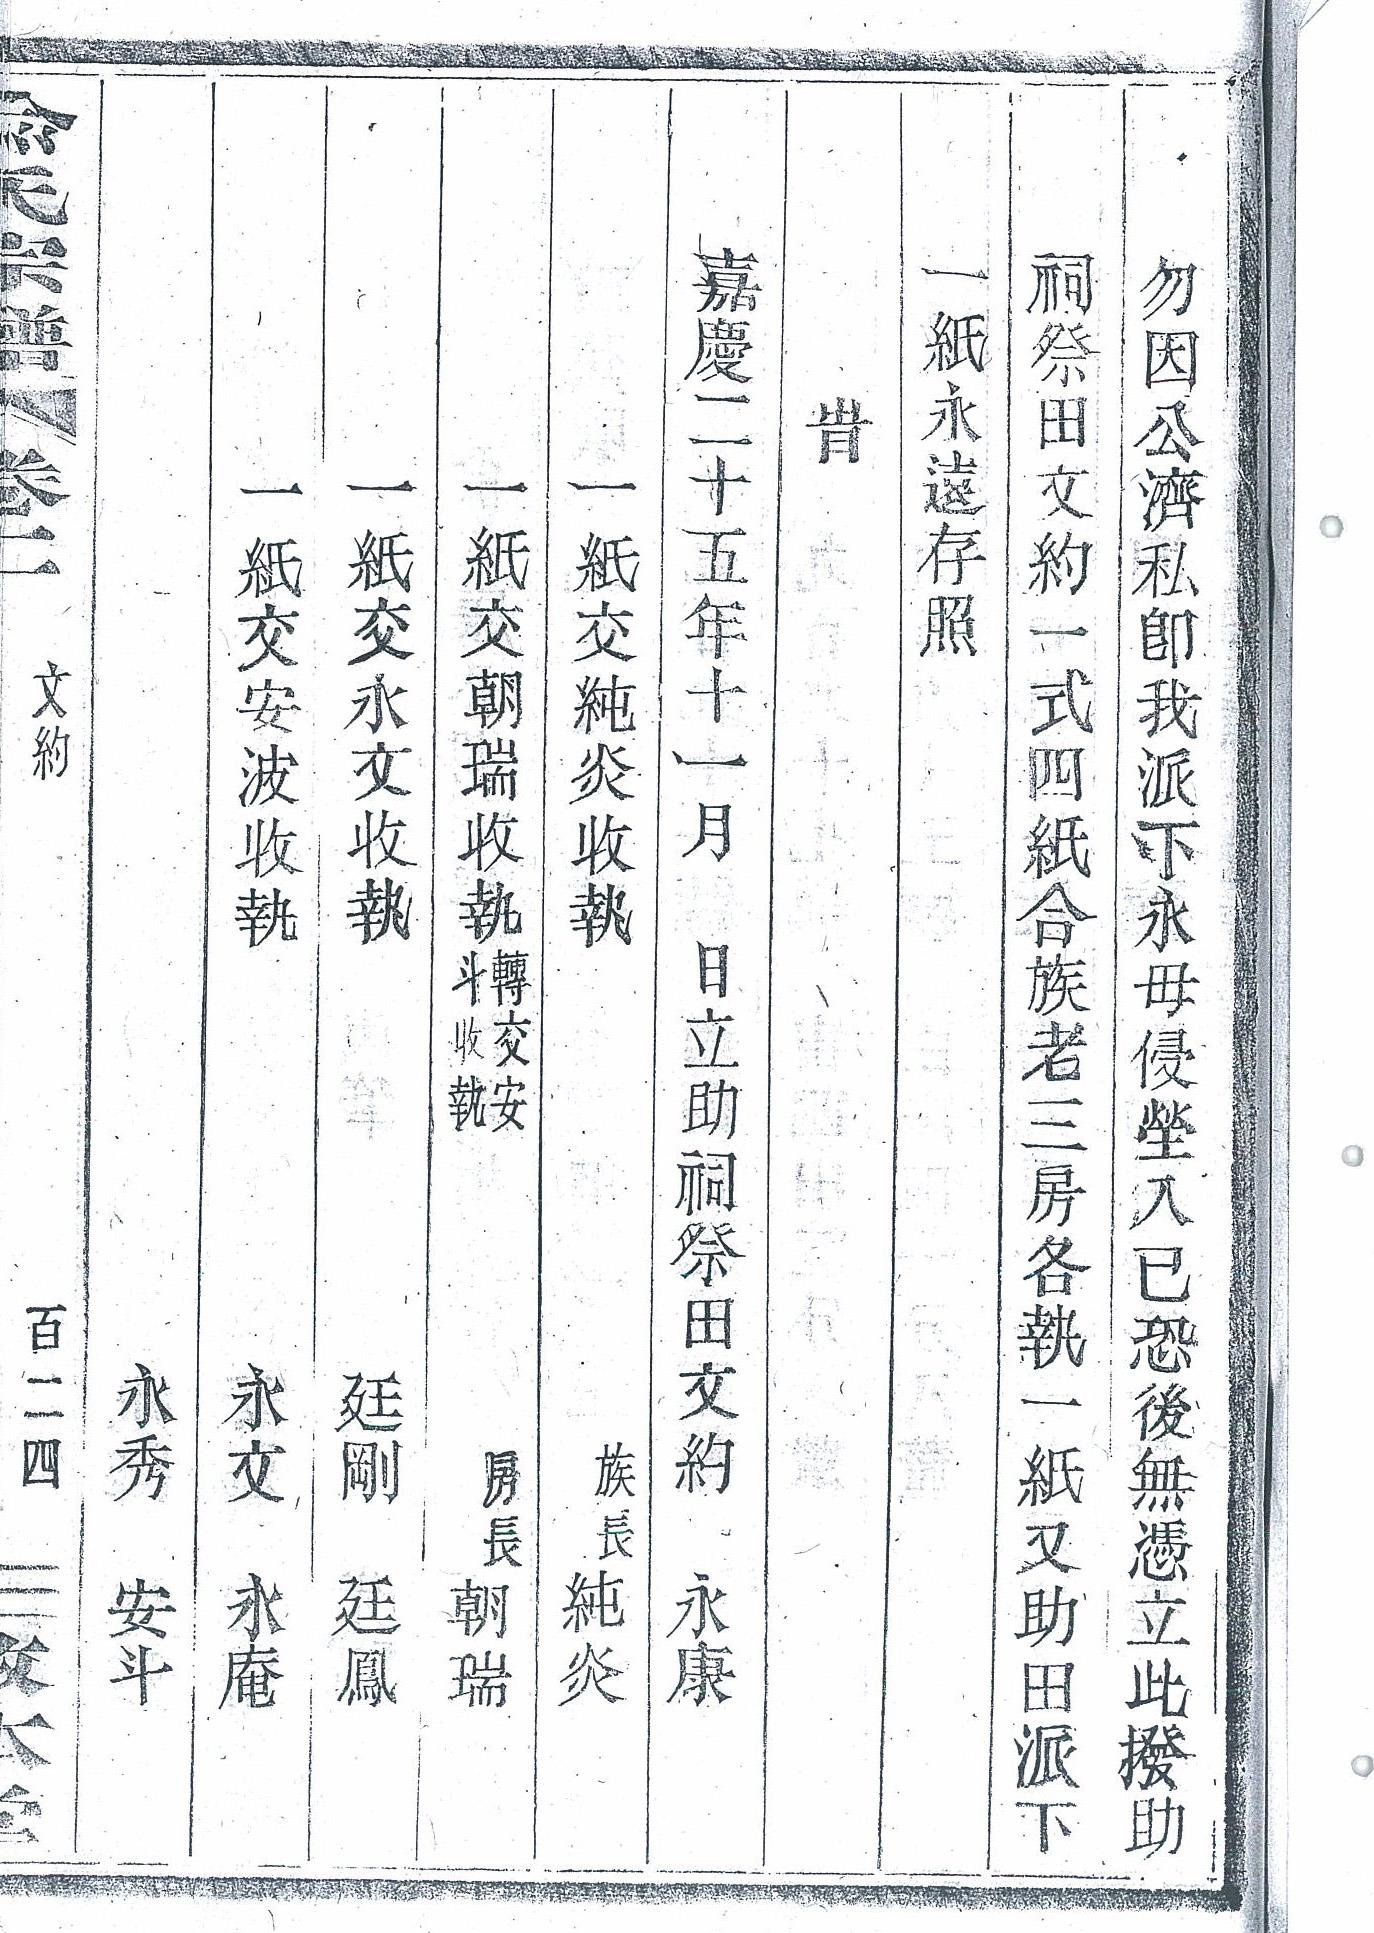 勿因公濟私卽我派下永毋侵塋入已恐後無憑立此撥助
祠祭田文約一式四紙合族老三房各執一紙又助田派下
一紙永遠存照
旹
嘉慶二十五年十一月　日立助祠祭田文約　永康
一紙交純炎收執　族長純炎
一紙交朝瑞收執轉交安斗收執　房長朝瑞
一紙交永文收執　廷剛　廷鳳
一紙交安波收執　永文　永庵
永秀　安斗
俞氏宗譜　卷二　文約　百二四　敦本堂